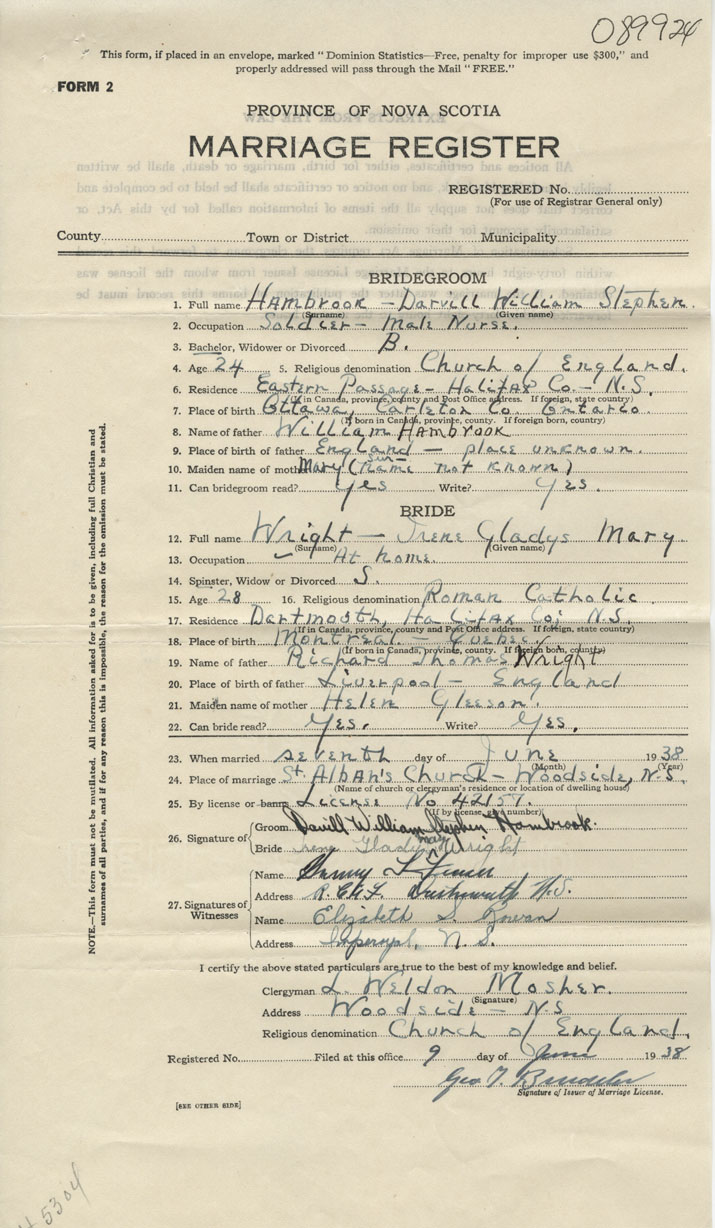 089924
This form, if placed in an envelope, marked "Dominion Statistics—Free, penalty for improper use $300," and
properly addressed will pass through the Mail "FREE."
FORM 2
PROVINCE OF NOVA SCOTIA
MARRIAGE REGISTER
REGISTERED No.
(For use of Registrar General only)
County Town or District Municipality
BRIDEGROOM
1. Full name Hambrook — Darvill William Stephen
(Surname) (Given name)
2. Occupation Soldier — Male Nurse.
3. Bachelor, Widower or Divorced B.
4. Age 24 5. Religious denomination Church of England.
6. Residence Eastern Passage - Halifax Co - N.S.
(If in Canada, province, county and Post Office address. If foreign, state country)
7. Place of birth Ottawa, Carleton Co Ontario
(If born in Canada, province, county. If foreign born, country)
8. Name of father William Hambrook
9. Place of father England — place unknown.
10. Maiden name of mother Mary (Sur name not known)
11. Can bridegroom read? Yes Write? Yes.
BRIDE
12. Full name Wright — Irene Gladys Mary
(Surname) (Given name)
13. Occupation At home.
14. Spinster, Widow or Divorced S.
15. Age 28 16. Religious denomination Roman Catholic
17. Residence Dartmouth, Halifax Co; N.S.
(If in Canada, province, county and Post Office address. If foreign, state country)
18. Place of birth Montreal - Quebec
(If born in Canada, province, county. If foreign born, country)
19. Name of father Richard Thomas Wright
20. Place of birth of father Liverpool - England
21. Maiden name of mother Helen Gleeson.
22. Can bride read? Yes. Write? Yes.
23. When married seventh day of June 1938
(Month) (Year)
24. Place of marriage St. Alban's Church - Woodside, N.S.
(Name of church or clergyman's residence or location of dwelling house)
25. By license or banns License No 42157.
(If by license, give number)
26. Signature of
Groom Darvill William Stephen Hambrook.
Bride Irene Gladys Mary Wright
27. Signatures of Witnesses
Name
Address Dartmouth N.S.
Name Elizabeth S. Bowan
Address Imperoyal, N.S.
I certify the above stated particulars are true to the best of my knowledge and belief.
Clergyman L. Weldon Mosher.
(Signature)
Address Woodside - N.S
Religious denomination Church of England.
Registered No. Filed at this office 9 day of June 1938
Geo T.
Signature of Issuer of Marriage License.
[SEE OTHER SIDE]
NOTE.—This form must not be mutilated. All information asked for is to be given, including full Christian and
surnames of all parties, and if for any reason this is impossible, the reason for the omission must be stated.
5304